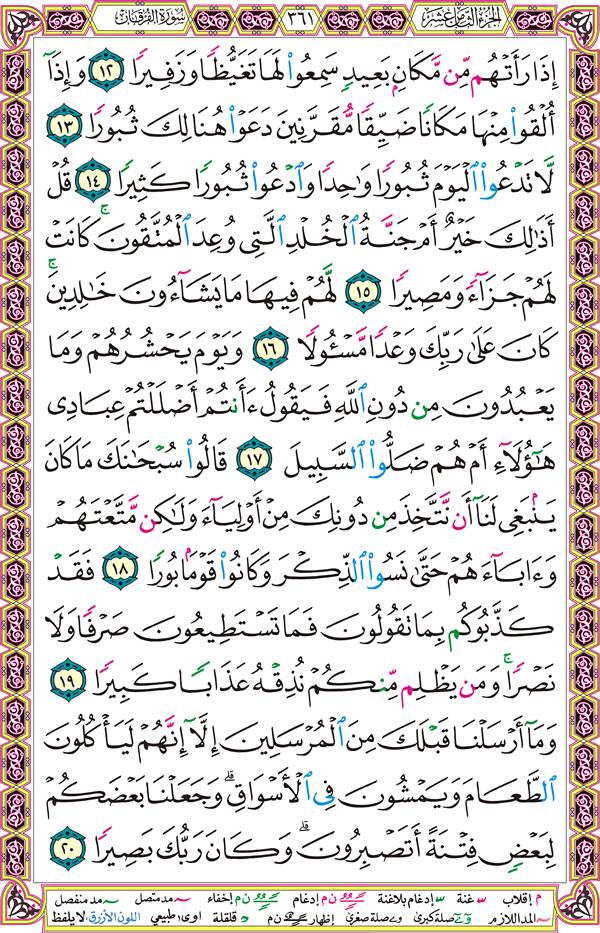 الجزء الثامن عشر ٣٦١ سورة الفرقان
إِذَا رَأَتْهُم مِّن مَّكَانٍۭ بَعِيدٍ سَمِعُوا۟ لَهَا تَغَيُّظًا وَزَفِيرًا ١٢ وَإِذَآ
أُلْقُوا۟ مِنْهَا مَكَانًا ضَيِّقًا مُّقَرَّنِينَ دَعَوْا۟ هُنَالِكَ ثُبُورًا ١٣
لَّا تَدْعُوا۟ ٱلْيَوْمَ ثُبُورًا وَٰحِدًا وَٱدْعُوا۟ ثُبُورًا كَثِيرًا ١٤ قُلْ
أَذَٰلِكَ خَيْرٌ أَمْ جَنَّةُ ٱلْخُلْدِ ٱلَّتِى وُعِدَ ٱلْمُتَّقُونَ ۚ كَانَتْ
لَهُمْ جَزَآءً وَمَصِيرًا ١٥ لَّهُمْ فِيهَا مَا يَشَآءُونَ خَٰلِدِينَ ۚ
كَانَ عَلَىٰ رَبِّكَ وَعْدًا مَّسْـُٔولًا ١٦ وَيَوْمَ يَحْشُرُهُمْ وَمَا
يَعْبُدُونَ مِن دُونِ ٱللَّهِ فَيَقُولُ ءَأَنتُمْ أَضْلَلْتُمْ عِبَادِى
هَٰٓؤُلَآءِ أَمْ هُمْ ضَلُّوا۟ ٱلسَّبِيلَ ١٧ قَالُوا۟ سُبْحَٰنَكَ مَا كَانَ
يَنۢبَغِى لَنَآ أَن نَّتَّخِذَ مِن دُونِكَ مِنْ أَوْلِيَآءَ وَلَٰكِن مَّتَّعْتَهُمْ
وَءَابَآءَهُمْ حَتَّىٰ نَسُوا۟ ٱلذِّكْرَ وَكَانُوا۟ قَوْمًۢا بُورًا ١٨ فَقَدْ
كَذَّبُوكُم بِمَا تَقُولُونَ فَمَا تَسْتَطِيعُونَ صَرْفًا وَلَا
نَصْرًا ۚ وَمَن يَظْلِم مِّنكُمْ نُذِقْهُ عَذَابًا كَبِيرًا ١٩
وَمَآ أَرْسَلْنَا قَبْلَكَ مِنَ ٱلْمُرْسَلِينَ إِلَّآ إِنَّهُمْ لَيَأْكُلُونَ
ٱلطَّعَامَ وَيَمْشُونَ فِى ٱلْأَسْوَاقِ ۗ وَجَعَلْنَا بَعْضَكُمْ
لِبَعْضٍ فِتْنَةً أَتَصْبِرُونَ ۗ وَكَانَ رَبُّكَ بَصِيرًا ٢٠
م إقلاب غنة إدغام بلاغنة ن م إدغام ن م إخفاء مد متصل مد منفصل
المد اللازم صلة كبرى صلة صغرى إظهار ن م قلقلة اوى طبيعي اللون الأزرق لا يلفظ